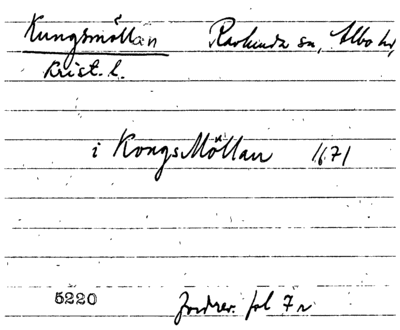 Kungsmöllan Ravlunda sn, Albo hd,
Krist. l.
i KongsMöllan 1671
5220 Jordrev. fol 7 r